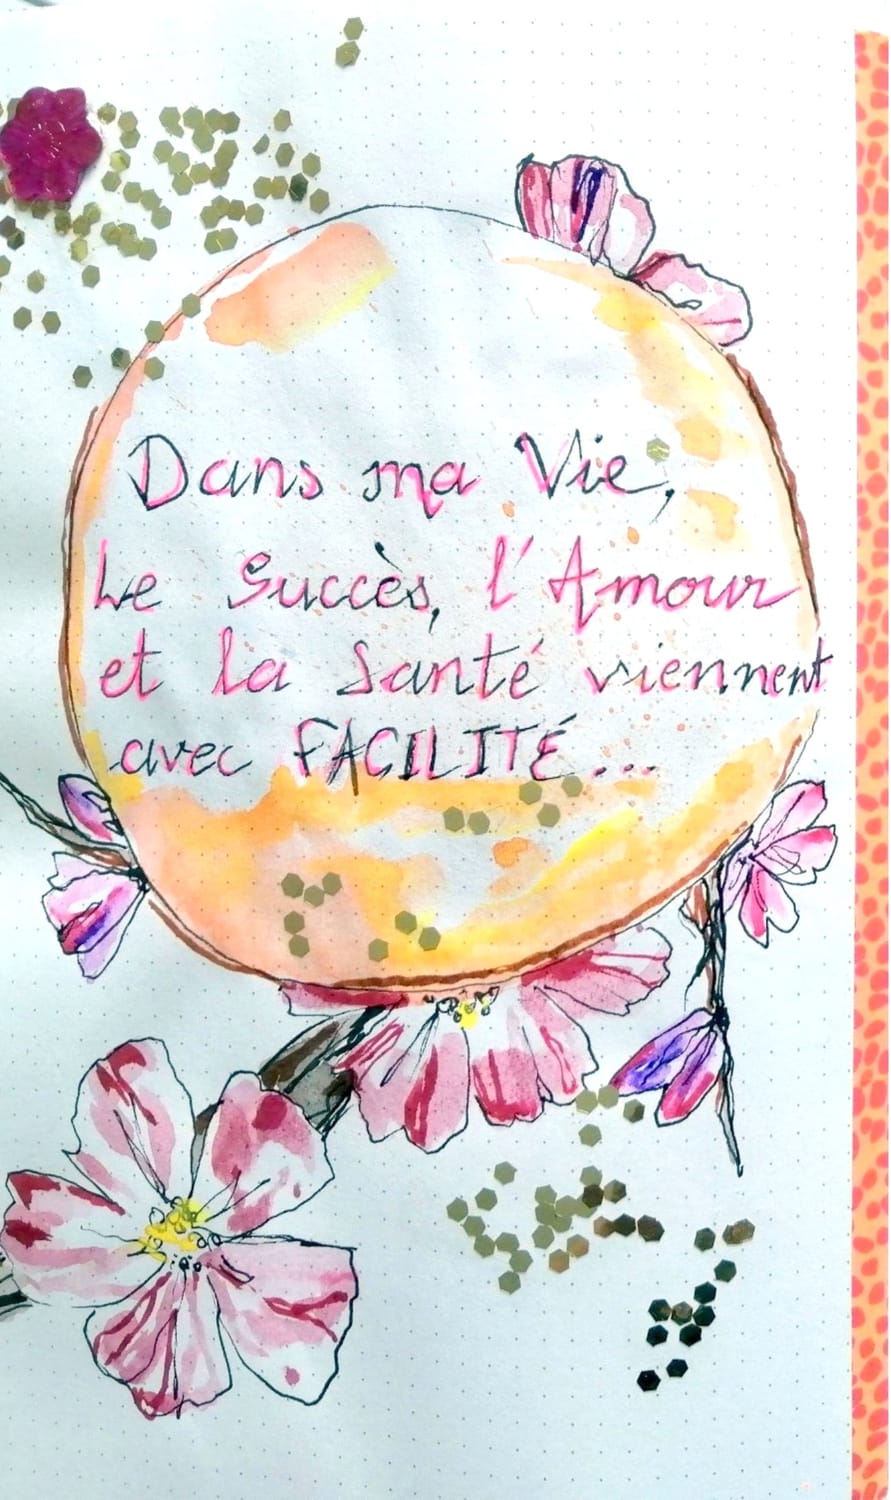 Dans ma Vie,
Le Succès, l'Amour
et la Santé viennent
avec FACILITÉ...